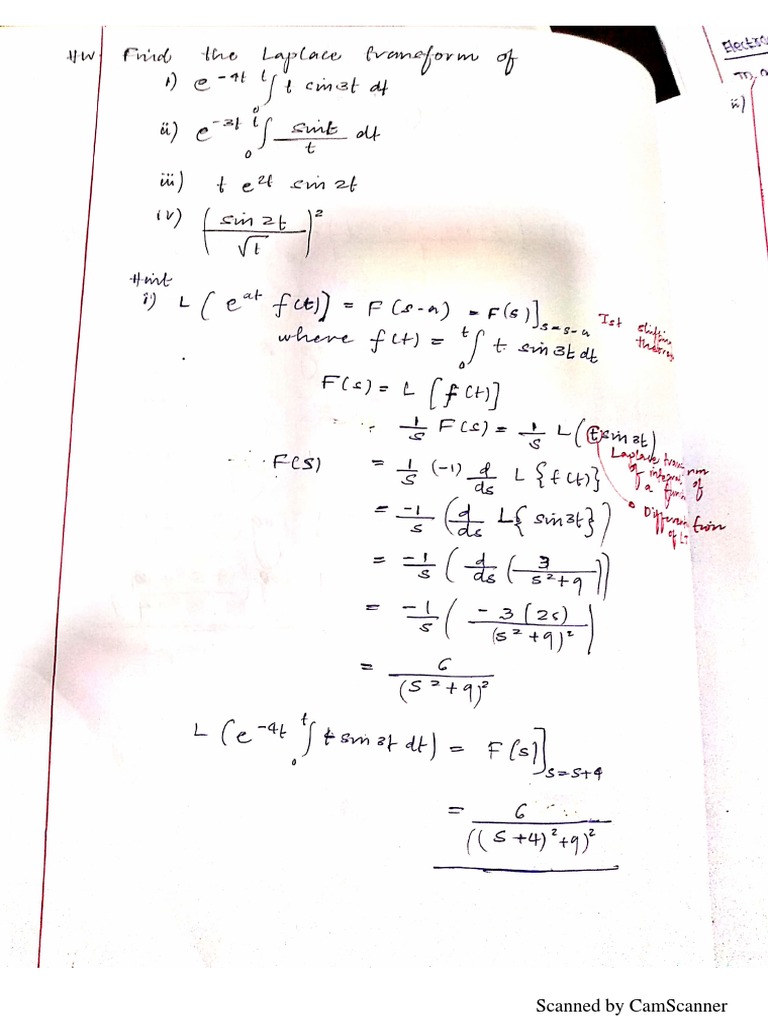 HW Find the Laplace transform of
i) e^{-4t} ∫_0^t t sin3t dt
ii) e^{-3t} ∫_0^t sint/t dt
iii) t e^{2t} sin 2t
iv) (sin 2t/√t)^2
Hint
i) L(e^{at} f(t)] = F(s-a) = F(s)]_{s=s-a} Ist shifting theorem
where f(t) = ∫_0^t t sin3t dt
F(s) = L[f(t)]
1/s F(s) = 1/s L(t sin3t)
Laplace transform of integral of a
F(S) = 1/s (-1) d/ds L{f(t)}
= -1/s (d/ds L{sin3t})
Differentiation of LT
= -1/s (d/ds (3/s^2+9))
= -1/s (-3(2s)/(s^2+9)^2)
= 6/(s^2+9)^2
L(e^{-4t} ∫_0^t t sin 3t dt) = F(s)]_{s=s+4}
= 6/((s+4)^2+9)^2
ii)
Scanned by CamScanner